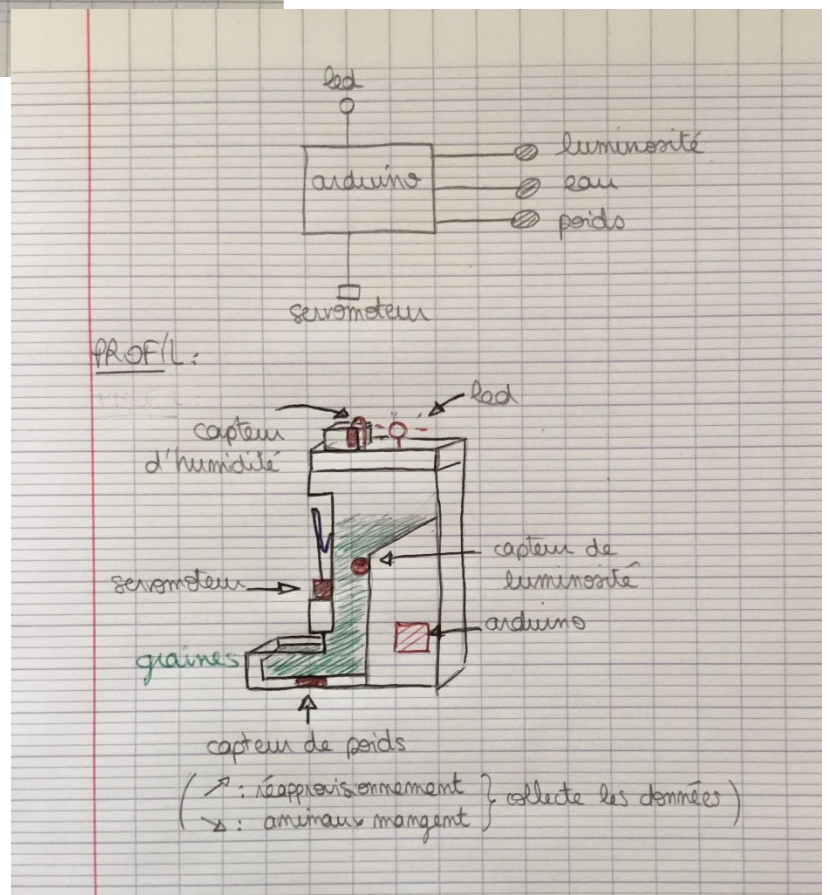 led
arduino
luminosité
eau
poids
servomoteur
PROFIL :
led
capteur
d'humidité
capteur de
luminosité
servomoteur
arduino
graines
capteur de poids
( ↗ : réapprovisionnement } collecte les données )
↘ : animaux mangent